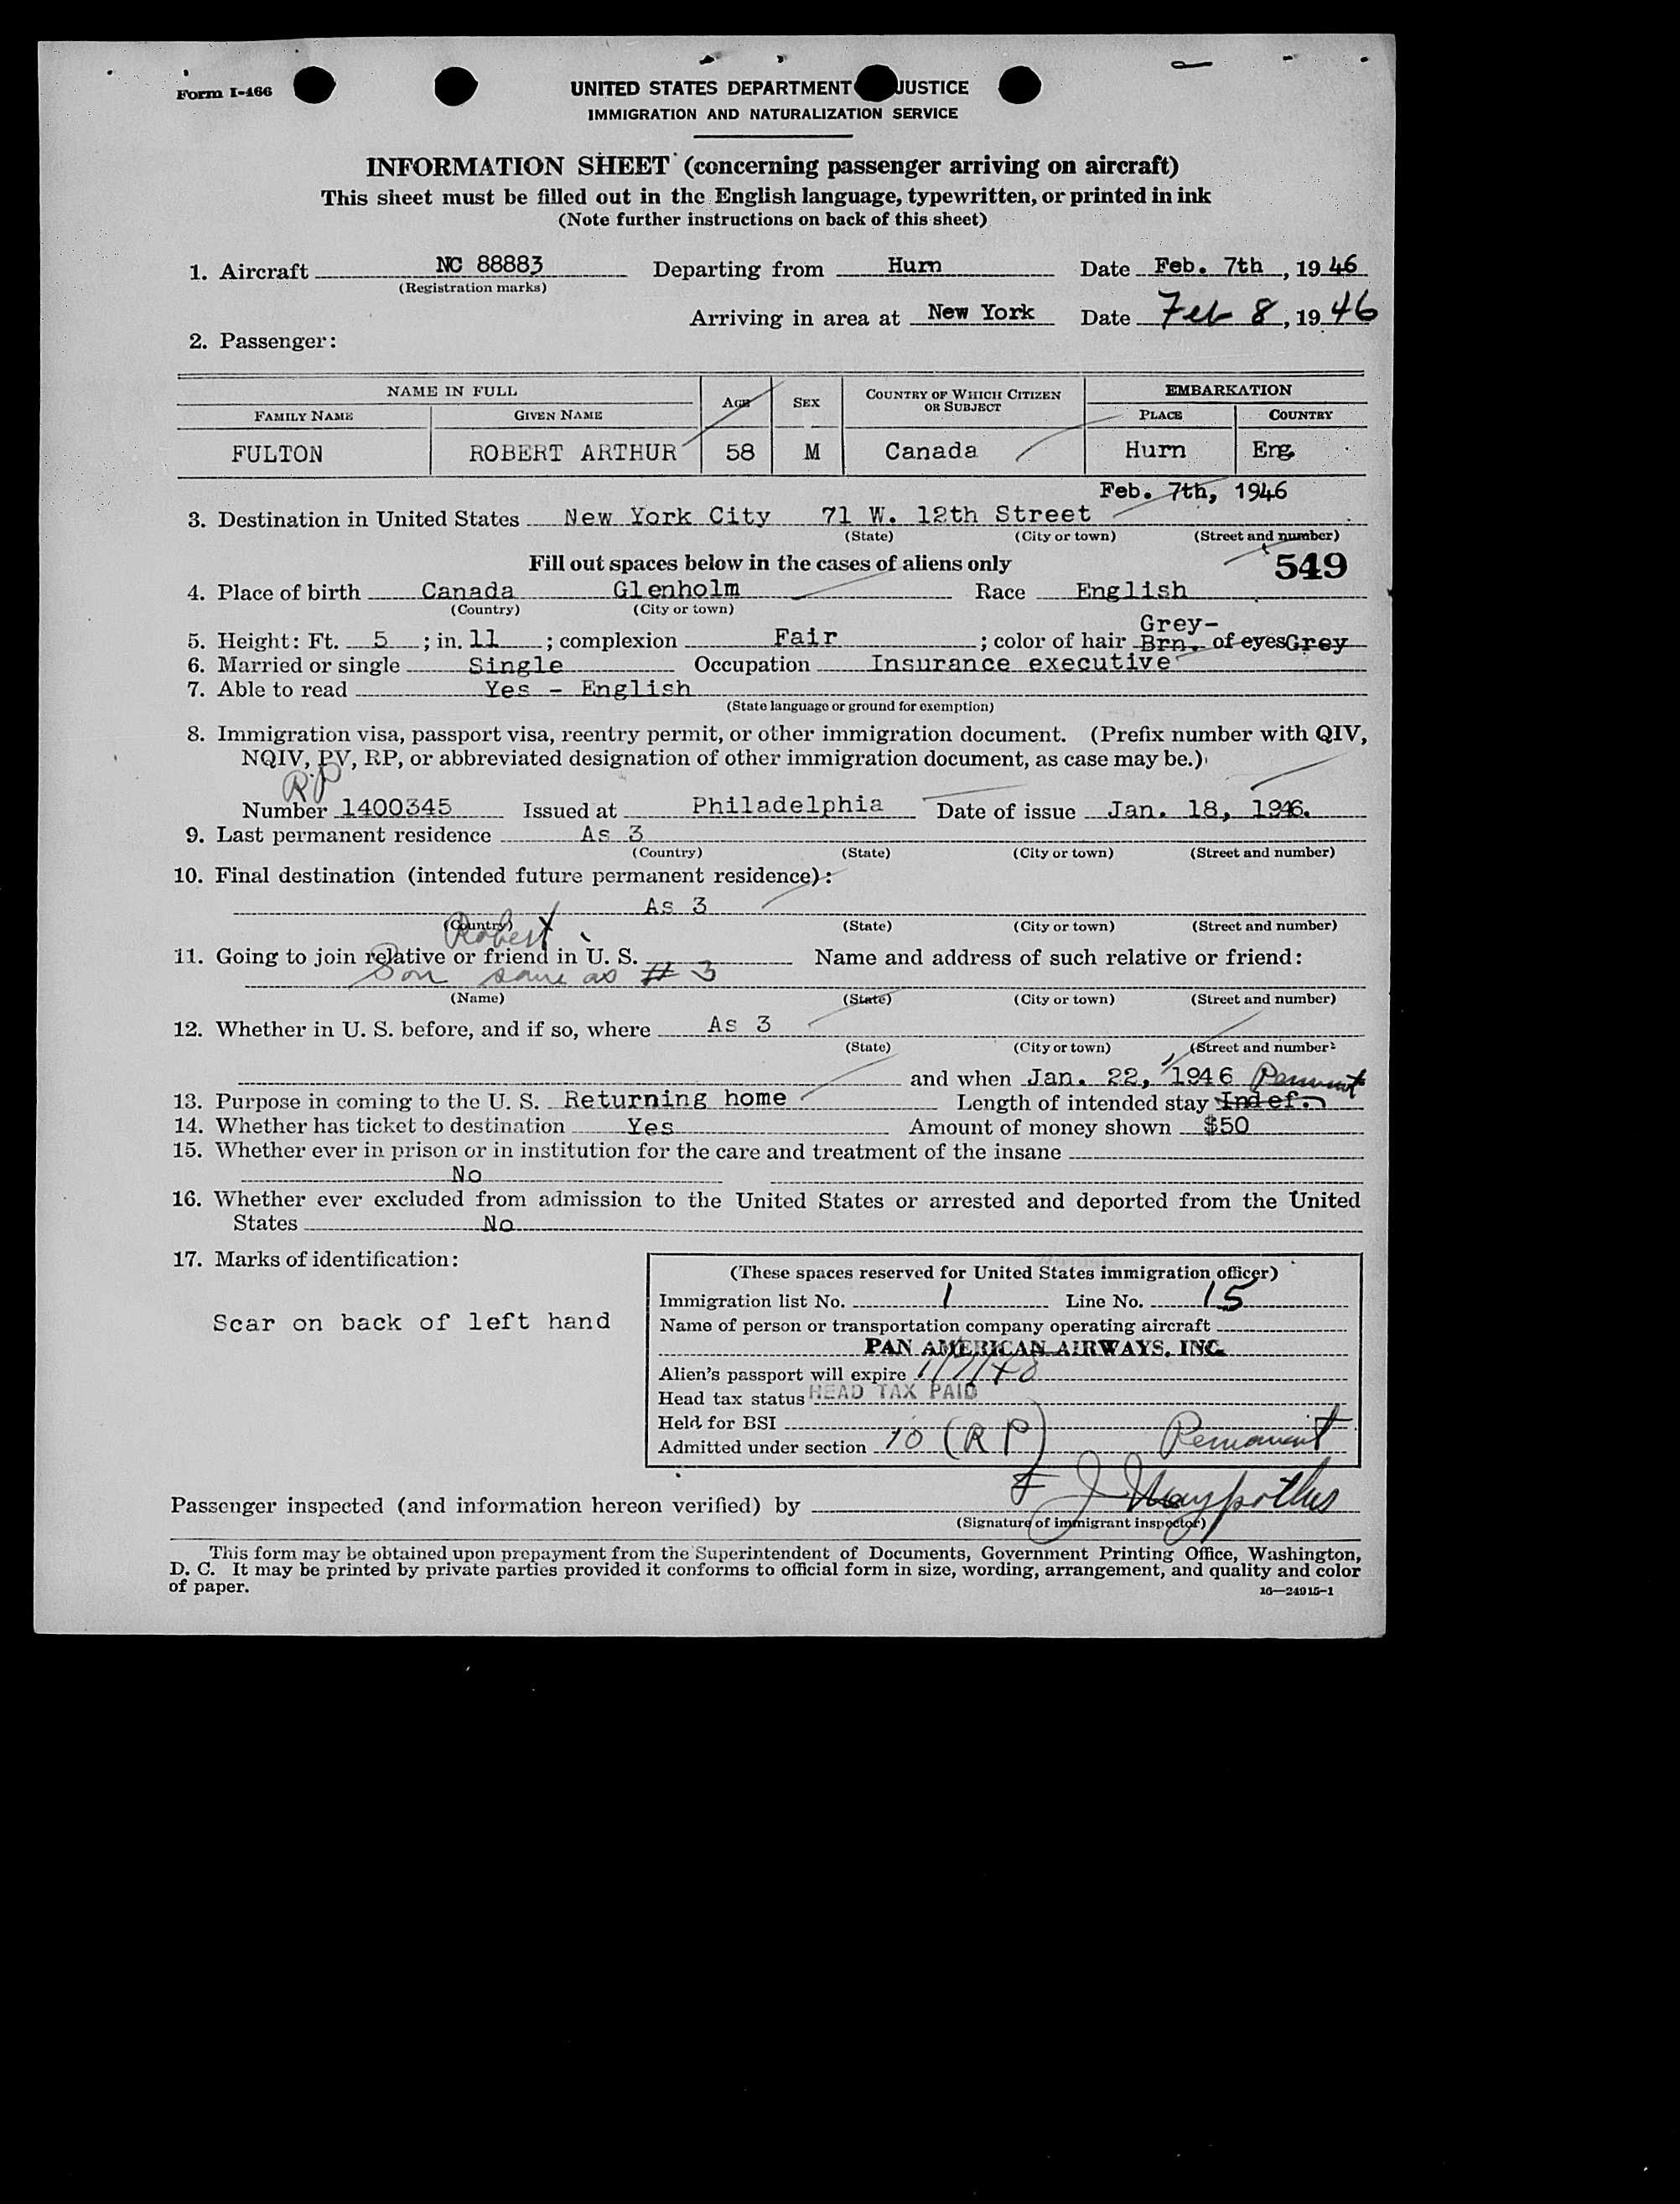 Form I-466
UNITED STATES DEPARTMENT JUSTICE
IMMIGRATION AND NATURALIZATION SERVICE
INFORMATION SHEET (concerning passenger arriving on aircraft)
This sheet must be filled out in the English language, typewritten, or printed in ink
(Note further instructions on back of this sheet)
1. Aircraft NC 88883 Departing from Hurn Date Feb. 7th, 1946
(Registration marks)
Arriving in area at New York Date Feb 8, 1946
2. Passenger:
NAME IN FULL AGE SEX COUNTRY OF WHICH CITIZEN OR SUBJECT EMBARKATION
FAMILY NAME GIVEN NAME PLACE COUNTRY
FULTON ROBERT ARTHUR 58 M Canada Hurn Eng.
Feb. 7th, 1946
3. Destination in United States New York City 71 W. 12th Street
(State) (City or town) (Street and number)
Fill out spaces below in the cases of aliens only 549
4. Place of birth Canada Glenholm Race English
(Country) (City or town)
Grey-
5. Height: Ft. 5 ; in. 11 ; complexion Fair ; color of hair Brn. of eyes Grey
6. Married or single Single Occupation Insurance executive
7. Able to read Yes - English
(State language or ground for exemption)
8. Immigration visa, passport visa, reentry permit, or other immigration document. (Prefix number with QIV,
NQIV, PV, RP, or abbreviated designation of other immigration document, as case may be.)
RP
Number 1400345 Issued at Philadelphia Date of issue Jan. 18, 1946.
9. Last permanent residence As 3
(Country) (State) (City or town) (Street and number)
10. Final destination (intended future permanent residence):
As 3
(Country) (State) (City or town) (Street and number)
Robert
11. Going to join relative or friend in U. S. Name and address of such relative or friend:
Son same as # 3
(Name) (State) (City or town) (Street and number)
12. Whether in U. S. before, and if so, where As 3
(State) (City or town) (Street and number)
and when Jan. 22, 1946 Permanent
13. Purpose in coming to the U. S. Returning home Length of intended stay Indef.
14. Whether has ticket to destination Yes Amount of money shown $50
15. Whether ever in prison or in institution for the care and treatment of the insane
No
16. Whether ever excluded from admission to the United States or arrested and deported from the United
States No
17. Marks of identification:
Scar on back of left hand
(These spaces reserved for United States immigration officer)
Immigration list No. 1 Line No. 15
Name of person or transportation company operating aircraft
PAN AMERICAN AIRWAYS, INC.
Alien's passport will expire 1/7/48
Head tax status HEAD TAX PAID
Held for BSI
Admitted under section 10 (RP) Permanent
Passenger inspected (and information hereon verified) by
(Signature of immigrant inspector)
This form may be obtained upon prepayment from the Superintendent of Documents, Government Printing Office, Washington,
D. C. It may be printed by private parties provided it conforms to official form in size, wording, arrangement, and quality and color
of paper.
16—24915-1